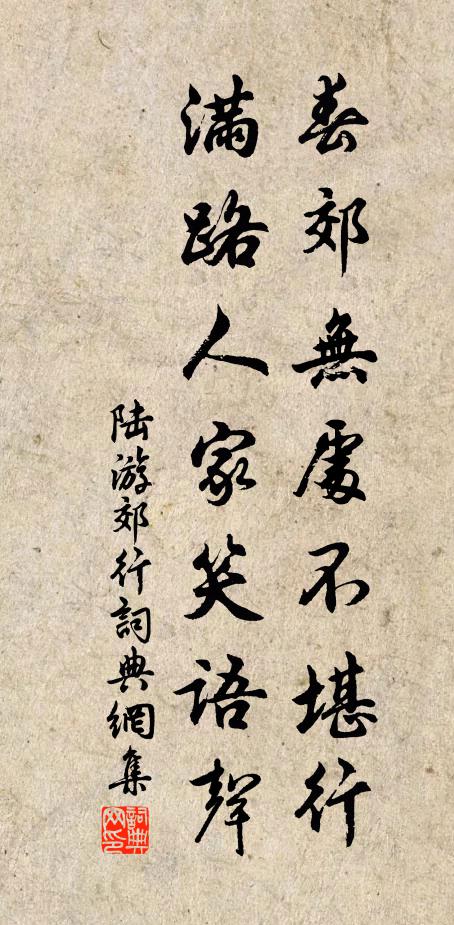 春郊無處不堪行
滿路人家笑語聲
陸游郊行詞典網集
詞典網印